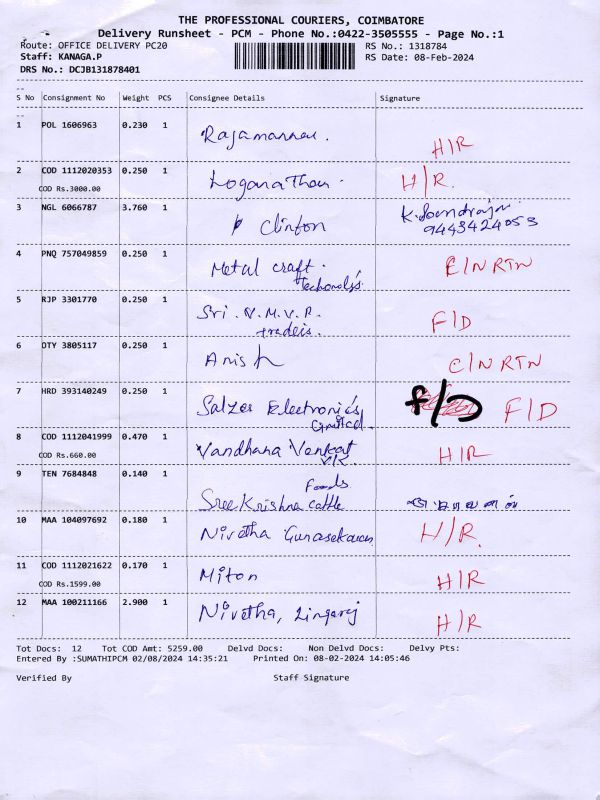 THE PROFESSIONAL COURIERS, COIMBATORE
Delivery Runsheet - PCM - Phone No.:0422-3505555 - Page No.:1
Route: OFFICE DELIVERY PC20 RS No.: 1318784
Staff: KANAGA.P RS Date: 08-Feb-2024
DRS No.: DCJB131878401
S No Consignment No Weight PCS Consignee Details Signature
1 POL 1606963 0.230 1 Rajamannan. H/R
2 COD 1112020353 0.250 1 Loganathan. H/R.
COD Rs.3000.00
3 NGL 6066787 3.760 1 Clinton K.Soundrajan
9443424053
4 PNQ 757049859 0.250 1 Metal craft. E/N RTN
5 RJP 3301770 0.250 1 Sri. V.M.V.P. F/D
traders.
6 OTY 3805117 0.250 1 Anish C/N RTN
7 HRD 393140249 0.250 1 Salzer Electronics F/D F/D
Limited.
8 COD 1112041999 0.470 1 Vandhana Venkat H/R
COD Rs.660.00
9 TEN 7684848 0.140 1 Foods
Sree Krishna cattle
10 MAA 104097692 0.180 1 Nivetha Gunasekaran H/R.
11 COD 1112021622 0.170 1 Miton H/R
COD Rs.1599.00
12 MAA 100211166 2.900 1 Nivetha, Lingaraj H/R
Tot Docs: 12 Tot COD Amt: 5259.00 Delvd Docs: Non Delvd Docs: Delvy Pts:
Entered By :SUMATHIPCM 02/08/2024 14:35:21 Printed On: 08-02-2024 14:05:46
Verified By Staff Signature